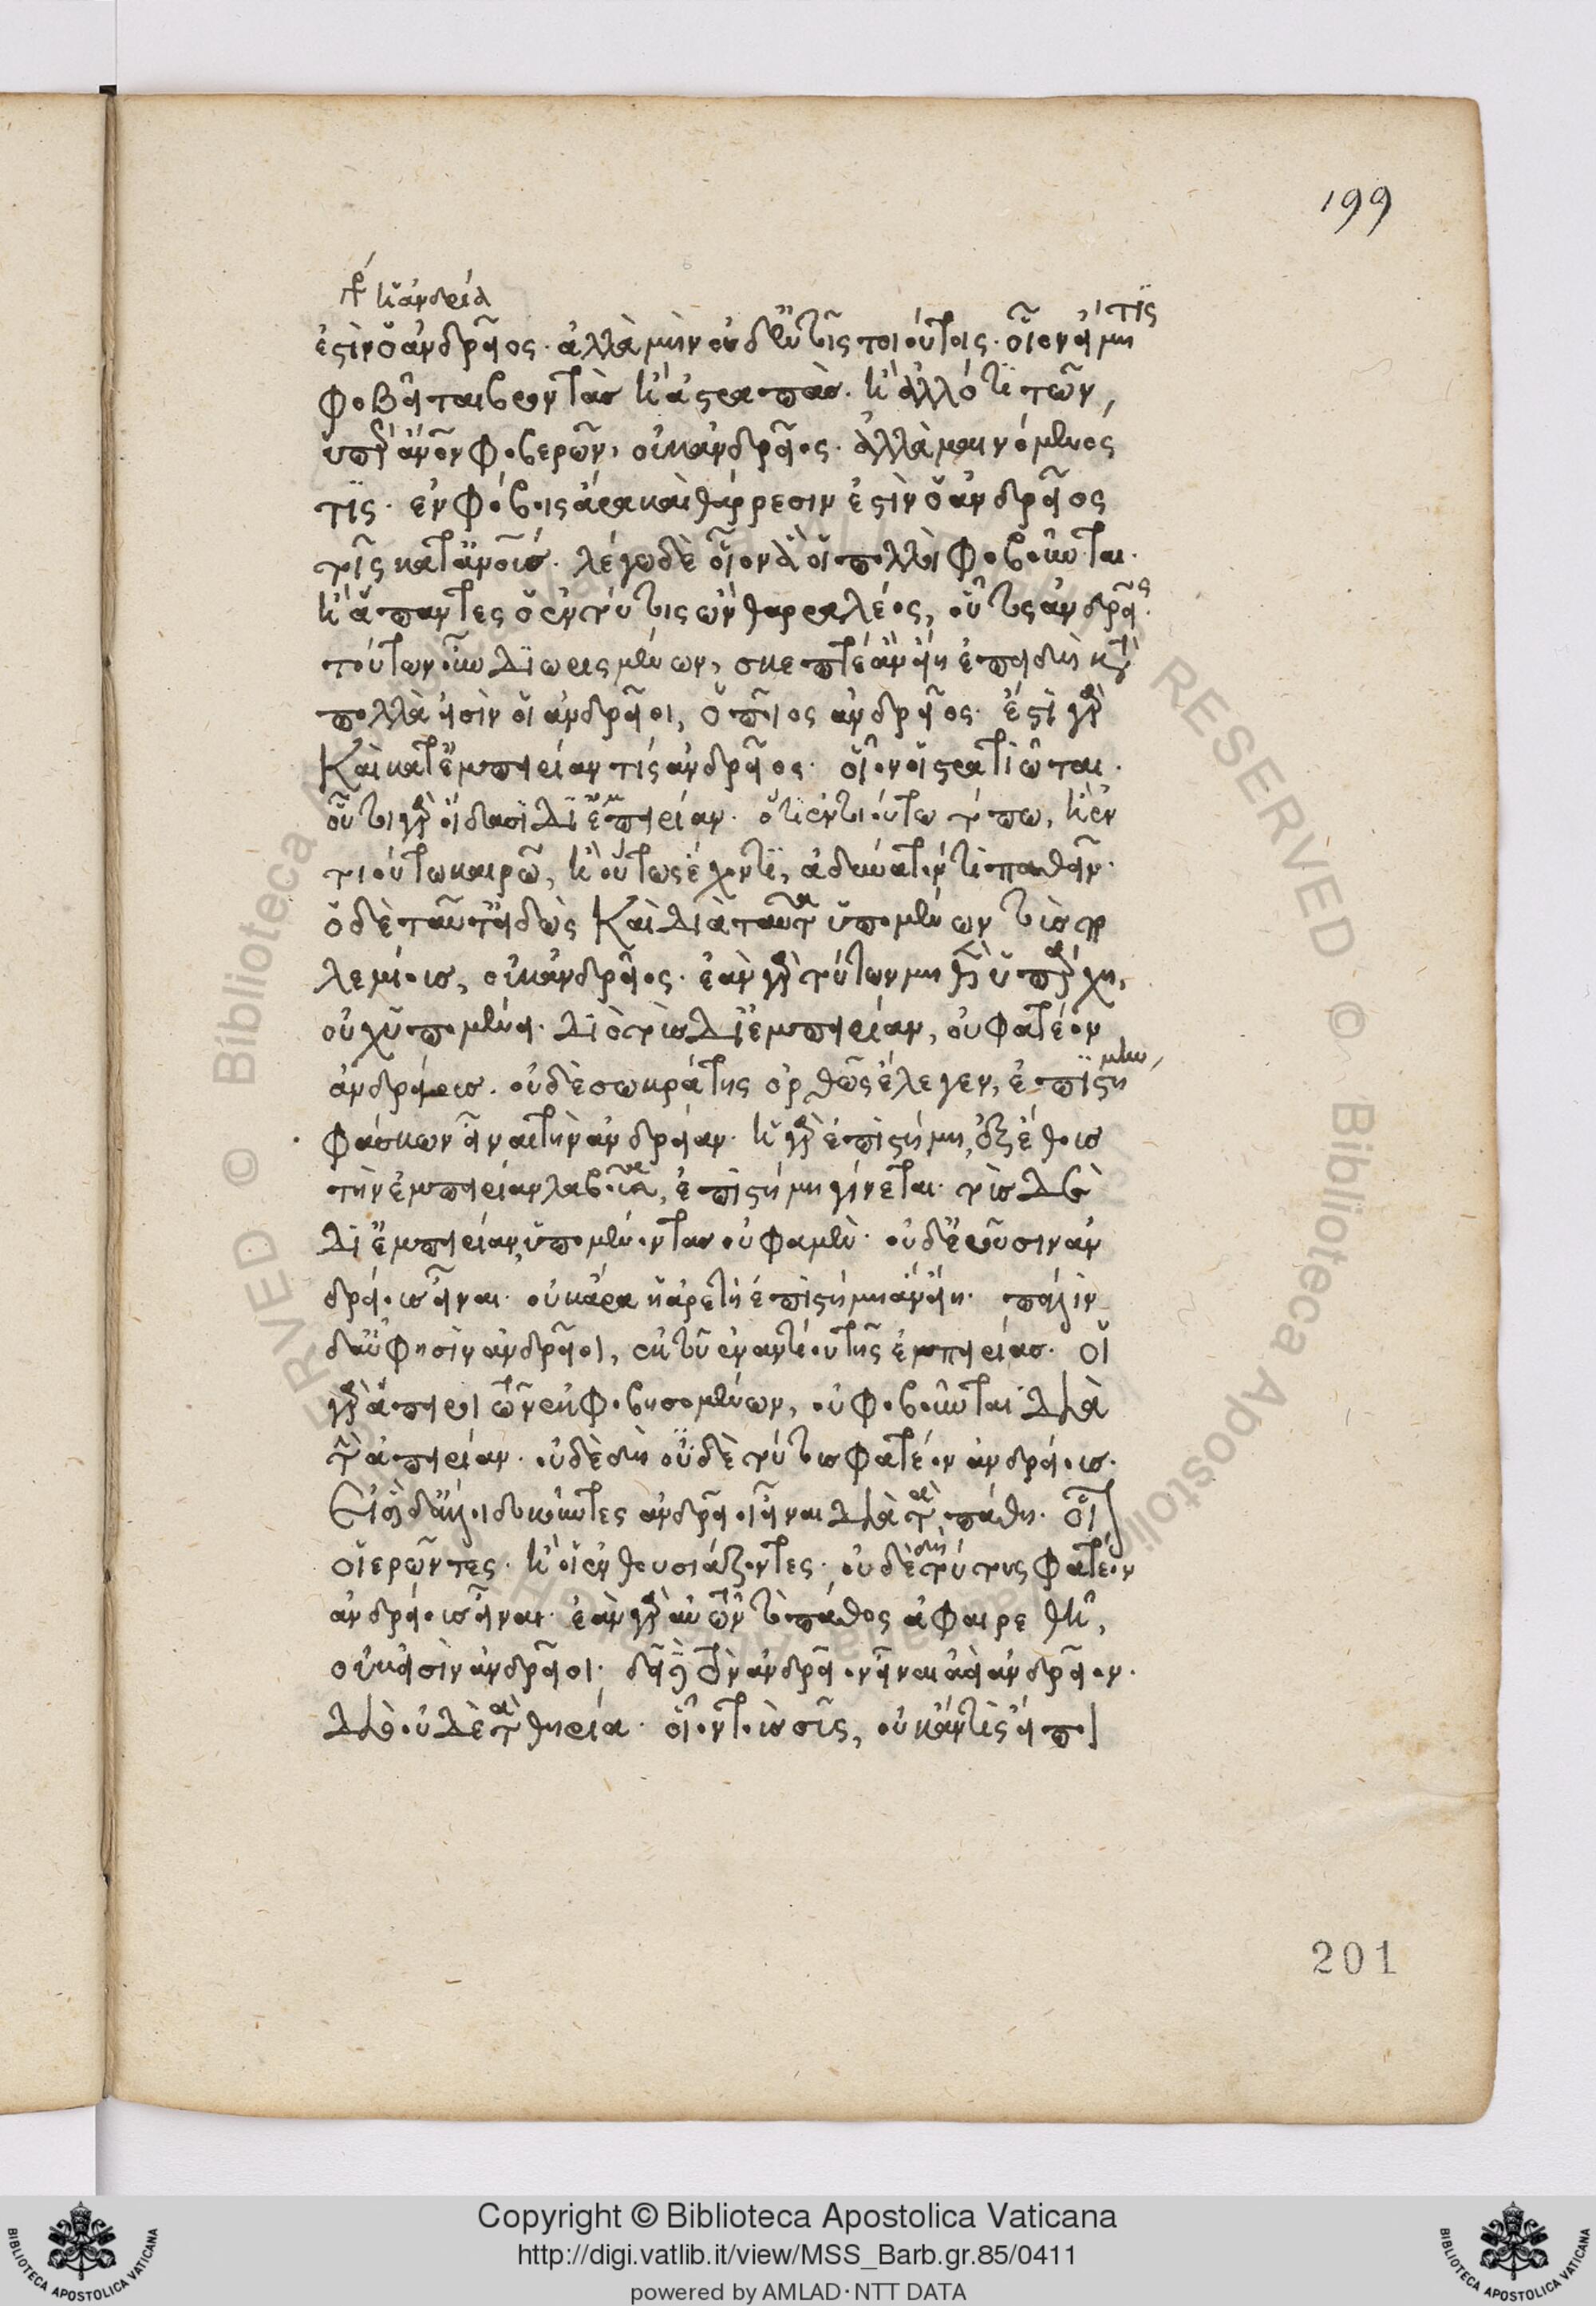 199
ἐστὶν ὁ ἀνδρεῖος· ἀλλὰ μὴν οὐδ' ἐν τοῖς τοιούτοις· οἷον εἴ τις μὴ
φοβεῖται βροντὰς ἢ ἀστραπὰς· ἢ ἄλλό τι τῶν
ὑπὲρ ἄνθρωπον φοβερῶν, οὐκ ἀνδρεῖος· ἀλλὰ μαινόμενός
τις· ἐν φόβοις ἄρα καὶ θάρρεσιν ἐστὶν ὁ ἀνδρεῖος
τοῖς κατ' ἄνθρωπον· λέγω δὲ οἷον ἃ οἱ πολλοὶ φοβοῦνται·
ἢ ἅπαντες ὁ ἐν τούτοις ὢν θαρραλέος, οὗτος ἀνδρεῖος·
τούτων οὖν διωρισμένων, σκεπτέον ἂν εἴη ἐπειδὴ κατὰ
πολλὰ εἰσὶν οἱ ἀνδρεῖοι, ὁ ποῖος ἀνδρεῖος· ἔστι γὰρ
καὶ κατ' ἐμπειρίαν τίς ἀνδρεῖος· οἷον οἱ στρατιῶται·
οὗτοι γὰρ οἴδασι δι' ἐμπειρίαν· ὅτι ἐν τοιούτω τόπω, ἢ ἐν
τοιούτω καιρῶ, ἢ οὕτως ἔχοντι, ἀδύνατόν τι παθεῖν·
ὁ δὲ ταῦτ' εἰδὼς καὶ διὰ ταῦτα ὑπομένων τοὺς πο
λεμίους, οὐκ ἀνδρεῖος· ἐὰν γὰρ τούτων μηδὲν ὑπάρχη,
οὐχ ὑπομένει· διὸ τοὺς δι' ἐμπειρίαν, οὐ φατέον
ἀνδρείους· οὐδὲ σωκράτης ὀρθῶς ἔλεγεν, ἐπιστήμην
φάσκων εἶναι τὴν ἀνδρείαν· ἡ γὰρ ἐπιστήμη, ἐξ ἔθους
τὴν ἐμπειρίαν λαβοῦσα, ἐπιστήμη γίνεται· τοὺς δὲ
δι' ἐμπειρίαν, ὑπομένοντας οὐ φαμὲν· οὐδ' ἐροῦσιν ἀν
δρείους εἶναι· οὐκ ἄρα ἡ ἀρετὴ ἐπιστήμη ἂν εἴη· πάλιν
δ' αὖ φησὶν ἀνδρεῖοι, ἐκ τοῦ ἐναντίου τῆς ἐμπειρίας· οἱ
γὰρ ἄπειροι τῶν ἐκφοβησομένων, οὐ φοβοῦνται διὰ
τὴν ἀπειρίαν· οὐδὲ δὴ οὐδὲ τούτους φατέον ἀνδρείους·
Εἰσὶ δ' ἄλλοι δοκοῦντες ἀνδρεῖοι εἶναι διὰ τὰ πάθη· οἷον
οἱ ἐρῶντες· ἢ οἱ ἐνθουσιάζοντες· οὐδὲ δὴ τούτους φατέον
ἀνδρείους εἶναι· ἐὰν γὰρ αὐτῶν τὸ πάθος ἀφαιρεθῆ,
οὐκ εἰσὶν ἀνδρεῖοι· δεῖ δὲ τὸν ἀνδρεῖον εἶναι ἀεὶ ἀνδρεῖον·
διὸ οὐδὲ τὰ θηρία· οἷον τοὺς σῦς, οὐκ ἄν τις εἴποι
201
Copyright © Biblioteca Apostolica Vaticana
http://digi.vatlib.it/view/MSS_Barb.gr.85/0411
powered by AMLAD · NTT DATA